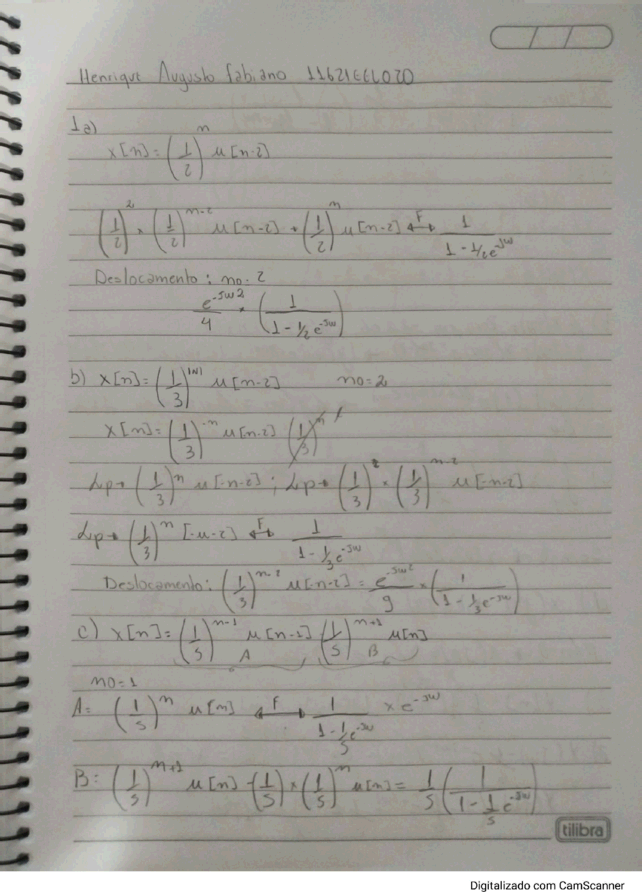 Henrique Augusto Fabiano 11621EEL020
1a)
x[n] = (1/2)^n u[n-2]
(1/2)^2 × (1/2)^{n-2} u[n-2] → (1/2)^n u[n-2] ↔F 1/(1 - 1/2 e^{-jw})
Deslocamento: no: 2
e^{-jw2}/4 × (1/(1 - 1/2 e^{-jw}))
b) x[n] = (1/3)^{|n|} u[-n-2] no=2
x[n] = (1/3)^{-n} u[-n-2] (1/3)^n
↳ (1/3)^n u[-n-2] ; ↳ (1/3)^2 × (1/3)^{n-2} u[-n-2]
↳ (1/3)^n [-u-2] ↔F 1/(1 - 1/3 e^{-jw})
Deslocamento: (1/3)^{n-2} u[-n-2] = e^{-jw2}/9 × (1/(1 - 1/3 e^{-jw}))
c) x[n] = (1/5)^{n-1} u[n-1] (1/5)^{n+1} u[n]
A B
no=1
A = (1/5)^n u[n] ↔F 1/(1 - 1/5 e^{-jw}) × e^{-jw}
B = (1/5)^{n+1} u[n] (1/5) × (1/5)^n u[n] = 1/5 (1/(1 - 1/5 e^{-jw}))
tilibra
Digitalizado com CamScanner